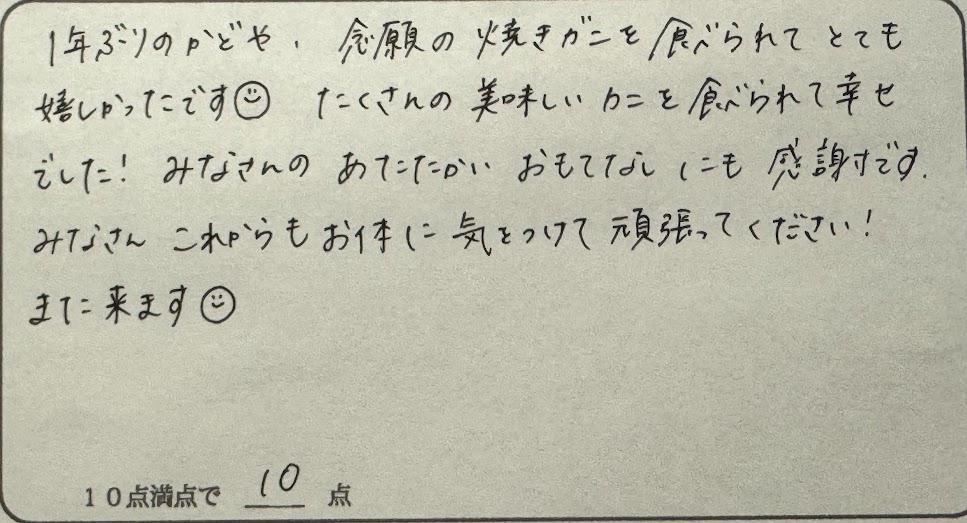 1年ぶりのかどや、念願の焼きガニを食べられてとても
嬉しかったです☺ たくさんの美味しいカニを食べられて幸せ
でした！みなさんのあたたかいおもてなしにも感謝です.
みなさんこれからもお体に気をつけて頑張ってください！
また来ます☺
10点満点で 10 点